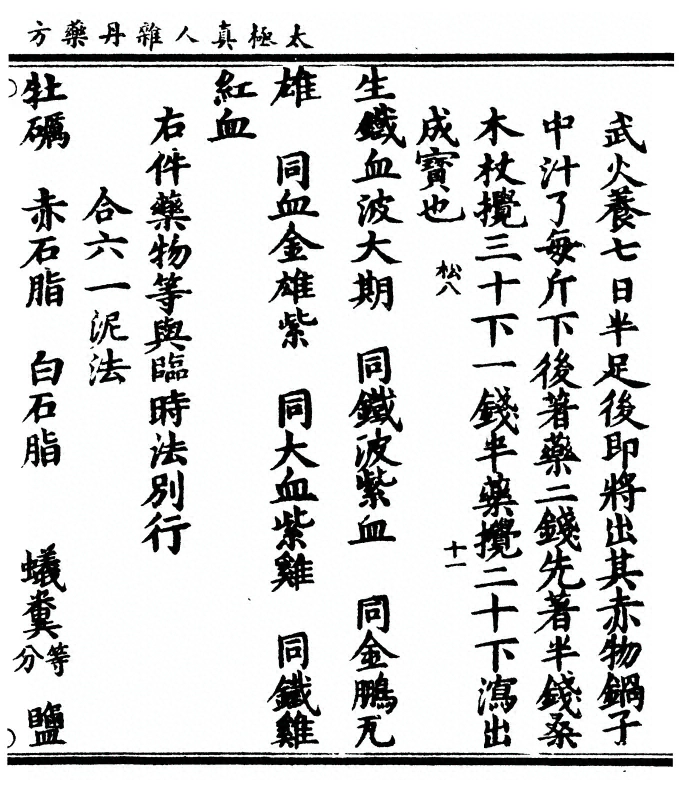 太極真人雜丹藥方
武火養七日半足後即將出其赤物鍋子
中汁了每斤下後著藥二錢先著半錢桑
木杖攪三十下一錢半藥攪二十下瀉出
成寶也
松八
十一
生鐵血波大期 同鐵波紫血 同金鵬兀
雄 同血金雄紫 同大血紫雞 同鐵雞
紅血
右件藥物等與臨時法別行
合六一泥法
牡礪 赤石脂 白石脂 蟻糞等分 鹽